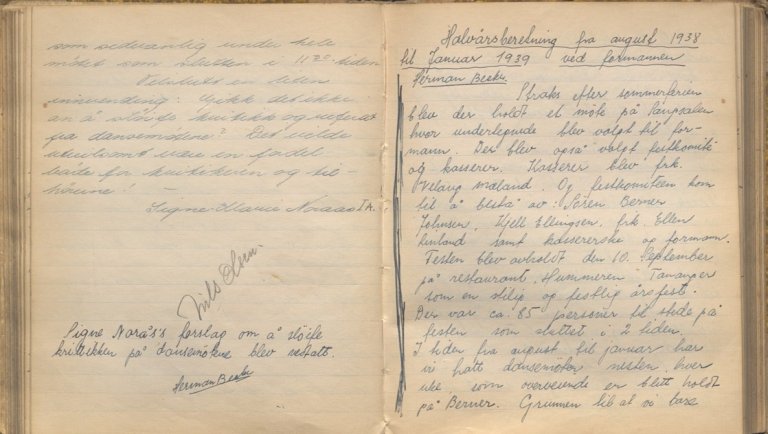 som sedvanlig under hele
møtet som sluttet i 11³⁰ tiden
Tilslutt en liten
innvending: Gikk det ikke
an å sløife kritikk og referat
fra dansemøtene? Det vilde
utvilsomt være en fordel
både for kritikeren og til-
hørerne!
Signe Marie Noraas I A.
Nils Olsen
Signe Norås's forslag om å sløife
kritikken på dansemøtene blev vedtatt.
Herman Becke
Halvårsberetning fra august 1938
til Januar 1939 ved formannen
Herman Becke.
Straks efter sommerferien
blev der holdt et møte på sangsalen
hvor undertegnede blev valgt til for-
mann. Der blev også valgt festkomité
og kasserer. Kasserer blev frk.
Måland. Og festkomiteen kom
til å bestå av: Sören Berner
Johnsen, Kjell Ellingsen, frk. Ellen
samt kassererske og formann.
Festen blev avholdt den 10. September
på restaurant "Hummeren" Tananger
som en stilig og festlig årsfest.
Der var ca. 85 personer til stede på
festen som sluttet i 2 tiden.
I tiden fra august til januar har
vi hatt dansemøter nesten hver
uke, som overveiende er blitt holdt
på Berner. Grunnen til at vi bare